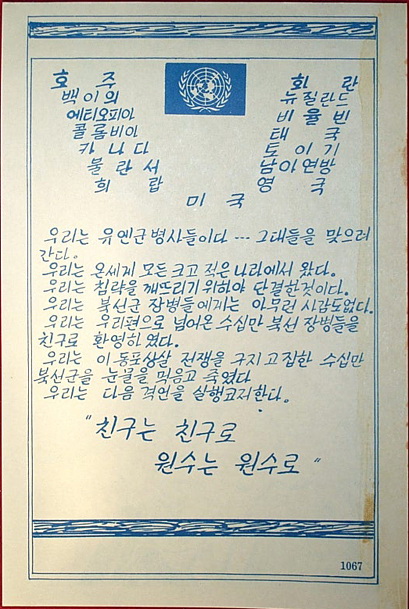 호 주 화 란
백이의 뉴질란드
에티오피아 비율빈
콜롬비아 태 국
카나다 토이기
불란서 남아연방
희 랍 영 국
미 국
우리는 유엔군 병사들이다 --- 그대들을 맞으러
간다.
우리는 온세계 모든 크고 적은 나라에서 왔다.
우리는 침략을 깨뜨리기 위하야 단결한것이다.
우리는 북선군 장병들에게는 아무런 사감도없다.
우리는 우리편으로 넘어온 수십만 북선 장병들을
친구로 환영하였다.
우리는 이 동포상살 전쟁을 구지 고집한 수십만
북선군을 눈물을 먹음고 죽였다
우리는 다음 격언을 실행코저한다.
"친구는 친구로
원수는 원수로"
1067